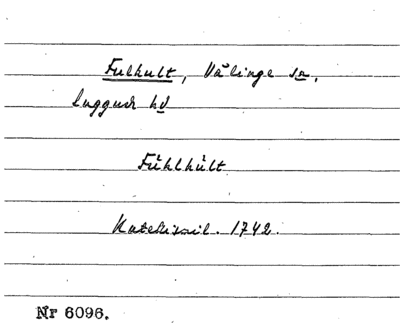 Fulhult, Välinge sn,
Luggude hd
Fühlhült
Katekismil. 1742.
Nr 6096.